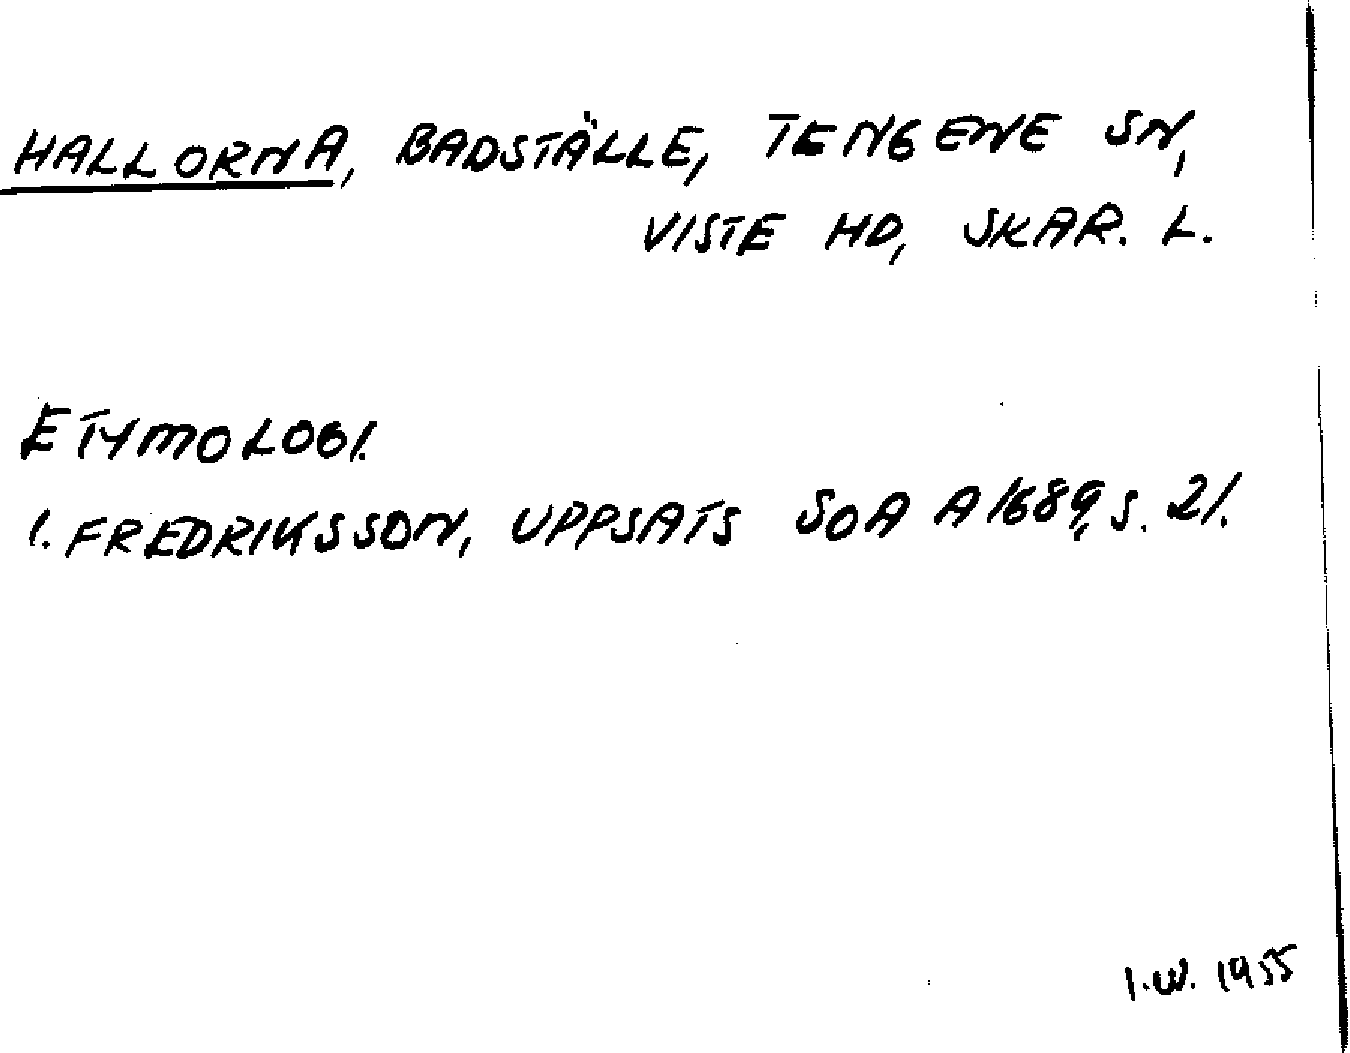 HALLORNA, BADSTÄLLE, TENGENE SN,
VISTE HD, SKAR. L.
ETYMOLOGI.
I. FREDRIKSSON, UPPSATS SOA A1689, S. 21.
I.W. 1955